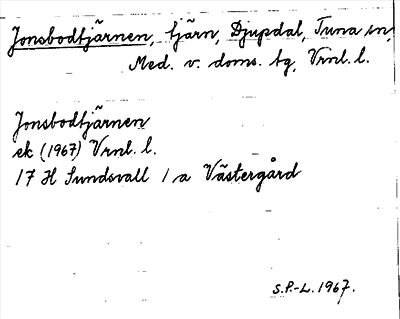 Jonsbodtjärnen, tjärn, Djupdal, Tuna sn,
Med. v. doms. tg, Vrnl. l.
Jonsbodtjärnen
ek (1967) Vrnl. l.
17 H Sundsvall 1 a Västergård
S.P.-L. 1967.